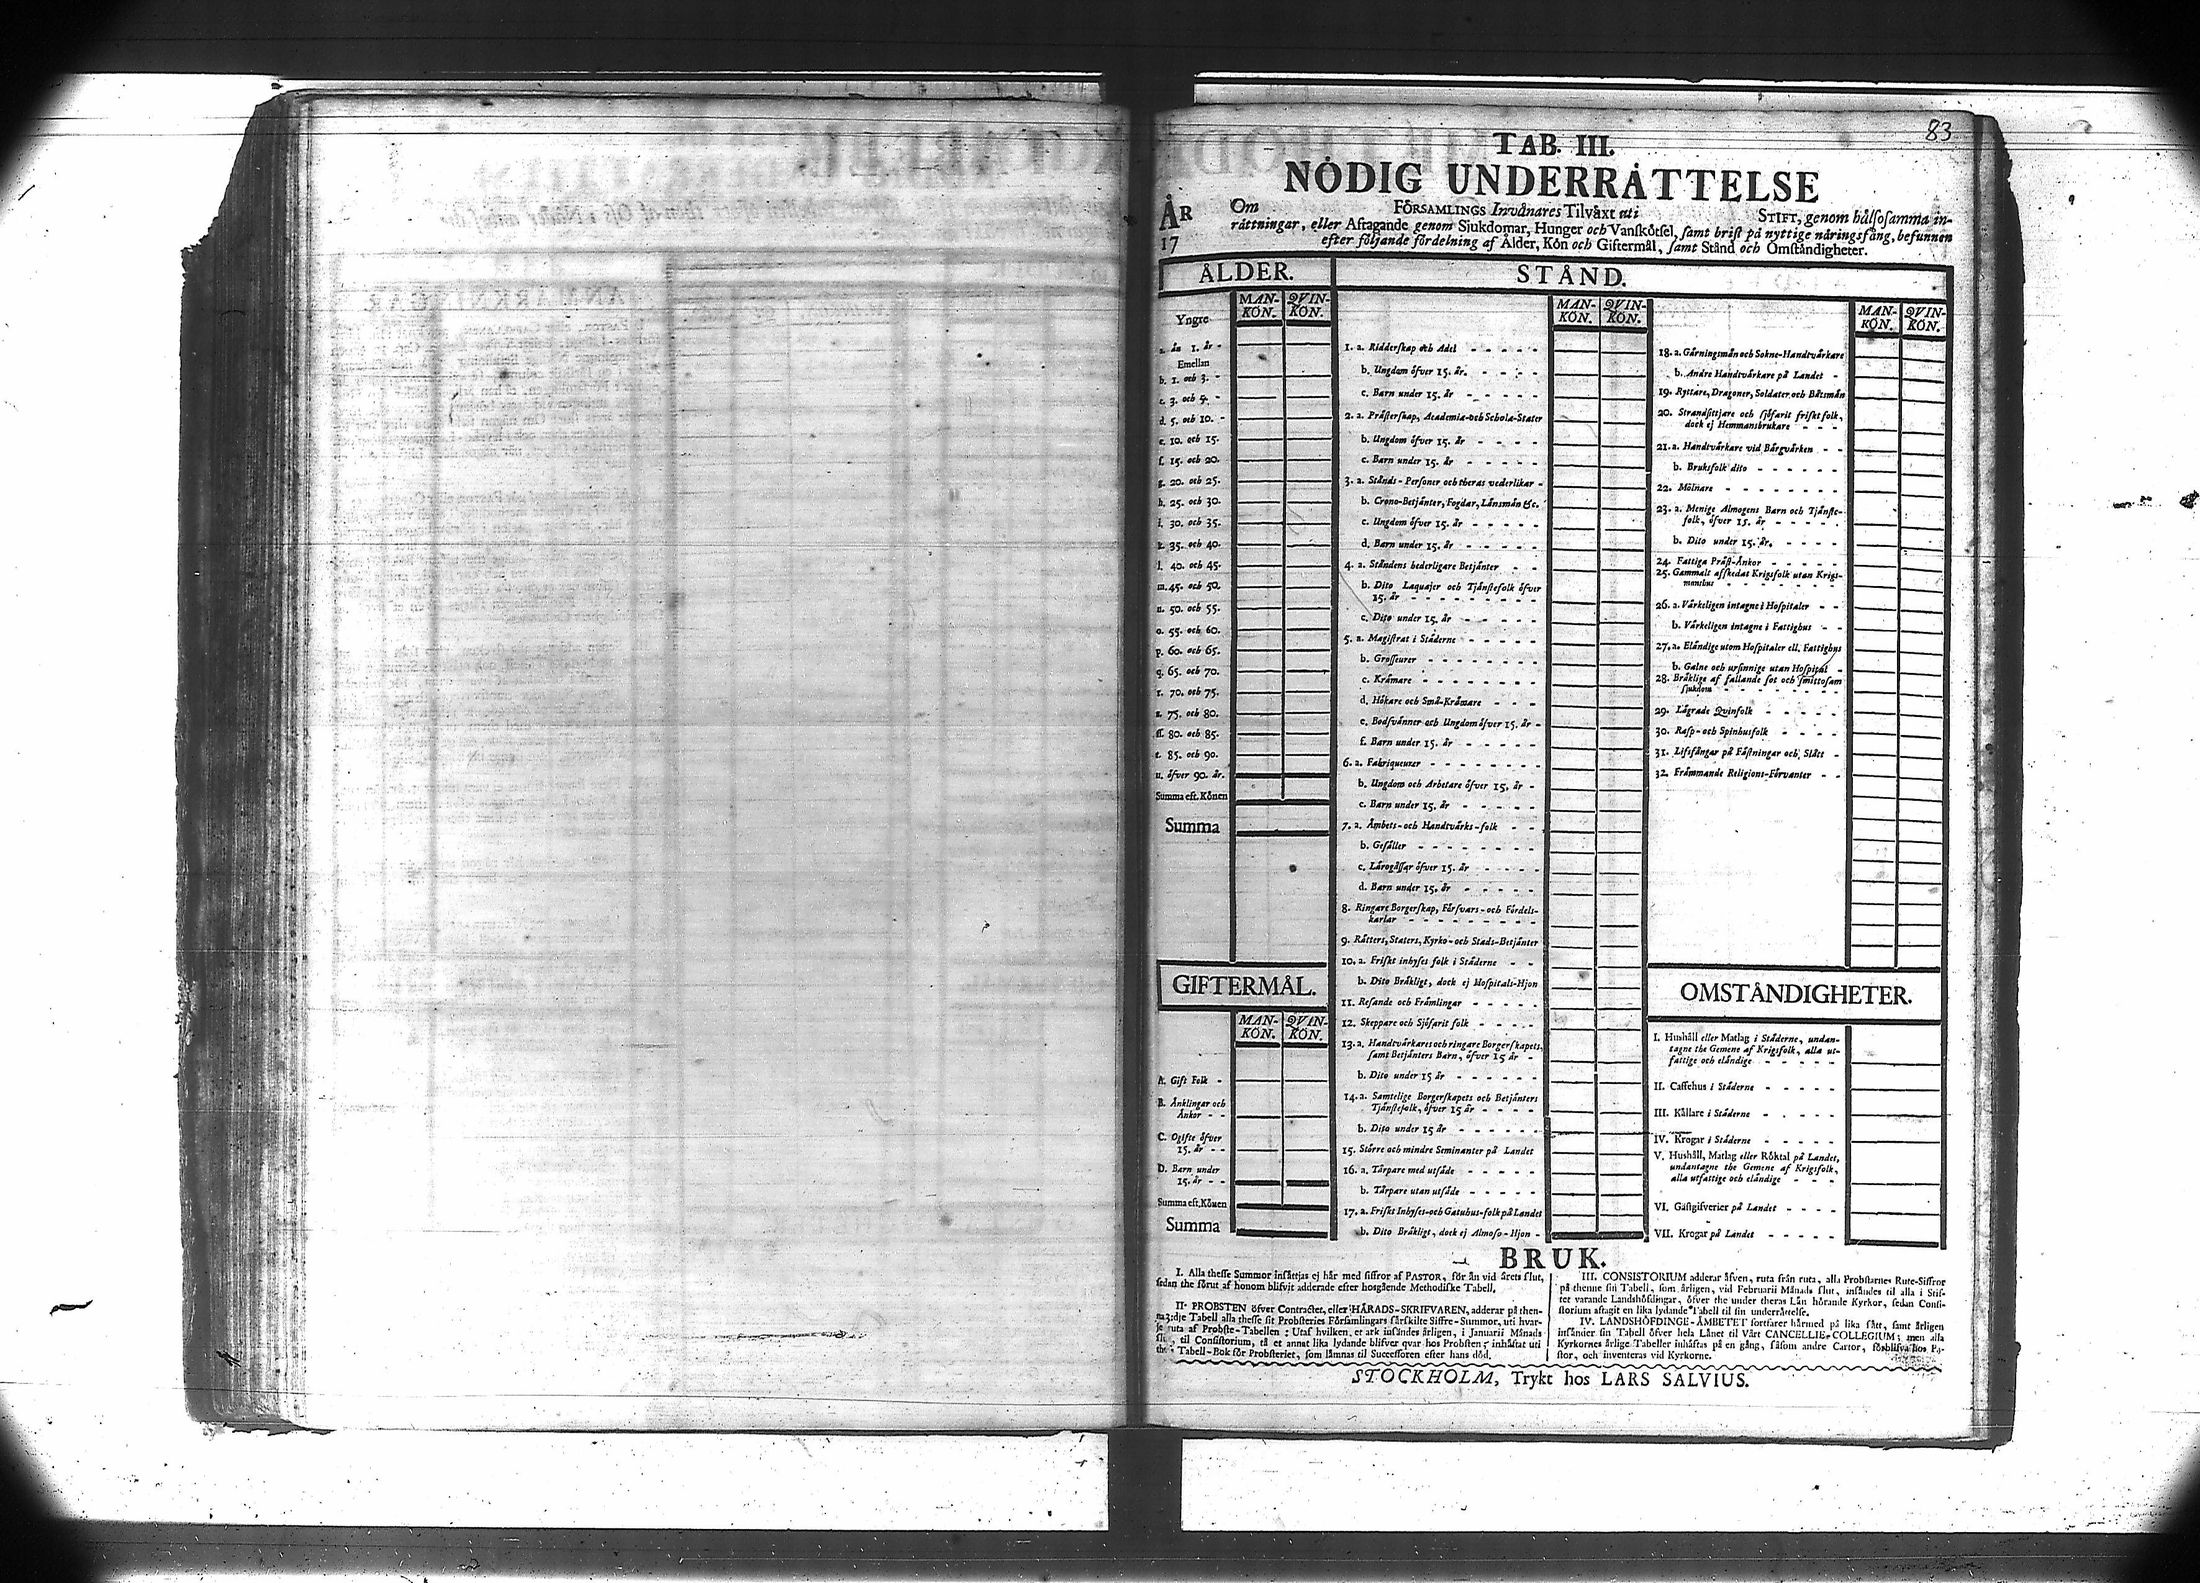 83
TAB. III.
NÖDIG UNDERRÅTTELSE
ÅR
17
Om FÖRSAMLINGS Invånares Tilvåxt uti STIFT, genom hålsosamma in-
råttningar, eller Aftagande genom Sjukdomar, Hunger och Vanskötsel, samt brist på nyttige nåringsfång, befunnen
efter följande fördelning af Ålder, Kön och Giftermål, samt Stånd och Omståndigheter.
ÅLDER.
MAN-KÖN. QVIN-KÖN.
Yngre
a. ån 1. år -
Emellan
b. 1. och 3. -
c. 3. och 5. -
d. 5. och 10. -
e. 10. och 15.
f. 15. och 20.
g. 20. och 25.
h. 25. och 30.
i. 30. och 35.
k. 35. och 40.
l. 40. och 45.
m. 45. och 50.
n. 50. och 55.
o. 55. och 60.
p. 60. och 65.
q. 65. och 70.
r. 70. och 75.
s. 75. och 80.
ss. 80. och 85.
t. 85. och 90.
u. öfver 90. år.
Summa eft. Könen
Summa
GIFTERMÅL.
MAN-KÖN. QVIN-KÖN.
A. Gift Folk -
B. Ånklingar och
Ånkor - -
C. Ogifte öfver
15. år - -
D. Barn under
15. år - -
Summa eft. Könen
Summa
STÅND.
MAN-KÖN. QVIN-KÖN.
1. a. Ridderskap och Adel - - - - -
b. Ungdom öfver 15. år. - - - -
c. Barn under 15. år - - - -
2. a. Pråsterskap, Academiæ-och Scholæ-Stater
b. Ungdom öfver 15. år - - - -
c. Barn under 15. år - - - - -
3. a. Stånds-Personer och theras vederlikar -
b. Crono-Betjånter, Fogdar, Lånsmån &c.
c. Ungdom öfver 15. år - - - -
d. Barn under 15. år - - - - -
4. a. Ståndens hederligare Betjånter - -
b. Dito Laquajer och Tjånstefolk öfver
15. år - - - - - - - -
c. Dito under 15. år - - - - -
5. a. Magistrat i Ståderne - - - - -
b. Grosseurer - - - - - - -
c. Kråmare - - - - - - -
d. Hökare och Små-Kråmare - - -
e. Bodsvånner och Ungdom öfver 15. år -
f. Barn under 15. år - - - - -
6. a. Fabriqueurer - - - - - - -
b. Ungdom och Arbetare öfver 15. år -
c. Barn under 15. år - - - - -
7. a. Åmbets-och Handtvårks-folk - -
b. Gesåller - - - - - - -
c. Lårogåssar öfver 15. år - - - -
d. Barn under 15. år - - - - -
8. Ringare Borgerskap, Försvars-och Fördels-
karlar - - - - - - - -
9. Råtters, Staters, Kyrko-och Stads-Betjånter
10. a. Friskt inhyses folk i Ståderne - -
b. Dito Bråkligt, dock ej Hospitals-Hjon
11. Resande och Fråmlingar - - - -
12. Skeppare och Sjöfarit folk - - - -
13. a. Handtvårkares och ringare Borgerskapets,
samt Betjånters Barn, öfver 15 år -
b. Dito under 15 år - - - - - -
14. a. Samtelige Borgerskapets och Betjånters
Tjånstefolk, öfver 15 år - - - -
b. Dito under 15 år - - - - -
15. Större och mindre Seminanter på Landet
16. a. Tårpare med utsåde - - - - -
b. Tårpare utan utsåde - - - - -
17. a. Friskt Inhyses-och Gatuhus-folk på Landet
b. Dito Bråkligt, dock ej Almoso-Hjon -
MAN-KÖN. QVIN-KÖN.
18. a. Gårningsmån och Sokne-Handtvårkare
b. Andre Handtvårkare på Landet -
19. Ryttare, Dragoner, Soldater och Båtsmån
20. Strandsittjare och sjöfarit friskt folk,
dock ej Hemmansbrukare - - -
21. a. Handtvårkare vid Bårgvårken - -
b. Bruksfolk dito - - - - - -
22. Mölnare - - - - - - -
23. a. Menige Almogens Barn och Tjånste-
folk, öfver 15. år - - - - -
b. Dito under 15. år. - - - - -
24. Fattiga Pråst-Ånkor - - - - -
25. Gammalt afskedat Krigsfolk utan Krigs-
manshus - - - - - - -
26. a. Vårkeligen intagne i Hospitaler - -
b. Vårkeligen intagne i Fattighus - -
27. a. Elåndige utom Hospitaler ell. Fattighus
b. Galne och ursinnige utan Hospital -
28. Bråklige af fallande sot och smittosam
sjukdom - - - - - - -
29. Lågrade Qvinfolk - - - - -
30. Rasp-och Spinhusfolk - - - - -
31. Lifsfångar på Fåstningar och Slått -
32. Fråmmande Religions-Förvanter - -
OMSTÅNDIGHETER.
I. Hushåll eller Matlag i Ståderne, undan-
tagne the Gemene af Krigsfolk, alla ut-
fattige och elåndige - - - - -
II. Caffehus i Ståderne - - - - -
III. Kållare i Ståderne - - - - -
IV. Krogar i Ståderne - - - - -
V. Hushåll, Matlag eller Röktal på Landet,
undantagne the Gemene af Krigsfolk,
alla utfattige och elåndige - - -
VI. Gåstgifverier på Landet - - - -
VII. Krogar på Landet - - - - -
BRUK.
I. Alla thesse Summor insåttjas ej hår med siffror af PASTOR, för ån vid årets slut,
sedan the förut af honom blifvit adderade efter hosgående Methodiske Tabell.
II. PROBSTEN öfver Contractet, eller HÅRADS-SKRIFVAREN, adderar på then-
na 3:dje Tabell alla thesse sit Probsteries Församlingars sårskilte Siffre-Summor, uti hvar-
je ruta af Probste-Tabellen: Utaf hvilken et ark insåndes årligen, i Januarii Månads
slut, til Consistorium, tå et annat lika lydande blifver qvar hos Probsten; inhåftat uti
the Tabell-Bok för Probsteriet, som låmnas til Successoren efter hans död.
III. CONSISTORIUM adderar åfven, ruta från ruta, alla Probstarnes Rute-Siffror
på thenne sin Tabell, som årligen, vid Februarii Månads slut, insåndes til alla i Stif-
tet varande Landshöfdingar, öfver the under theras Lån hörande Kyrkor, sedan Consi-
storium aftagit en lika lydande Tabell til sin underråttelse.
IV. LANDSHÖFDINGE-ÅMBETET fortfarer hårmed på lika sått, samt årligen
insånder sin Tabell öfver hela Lånet til Vårt CANCELLIE-COLLEGIUM; men alla
Kyrkornes årlige Tabeller inhåftas på en gång, såsom andre Cartor, förblifva hos Pa-
stor, och inventeras vid Kyrkorne.
STOCKHOLM, Trykt hos LARS SALVIUS.